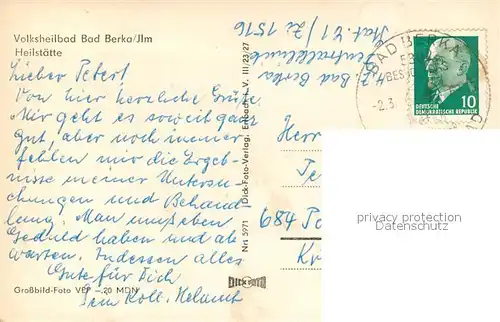 Volksheilbad Bad Berka/Jlm
Heilstätte
Lieber Peter!
Von hier herzliche Grüße.
Mir geht es soweit ganz
gut, aber noch immer
fehlen mir die Ergeb-
nisse meiner Untersu-
chungen und Behand
lung. Man muß eben
Geduld haben und ab
warten. Indessen alles
Gute für Dich
Dein Koll. Helmut
Großbild-Foto VEP –.20 MDN
Nrts 5971 (Dick-Foto-Verlag, Erlbach i. V. III/23/27
DICK FOTO
Stat. Z1 / Zi 1516
Zentralklinik
Bad Berka
BAD BERKA
-2.3.
10
DEUTSCHE
DEMOKRATISCHE REPUBLIK
Herr
684 Pö
Kr
privacy protection
Datenschutz